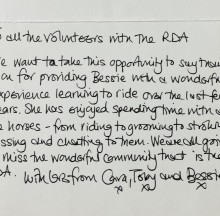 all the volunteers with the RDA
e want to take this opportunity to say thank
for providing Bessie with a wonderful
xperience learning to ride over the last few
ears. She has enjoyed spending time with
e horses - from riding to grooming to stroking
ssing and chatting to them. We will
miss the wonderful community that is the
DA. With love from Cara, Toby and Bessie
x x x